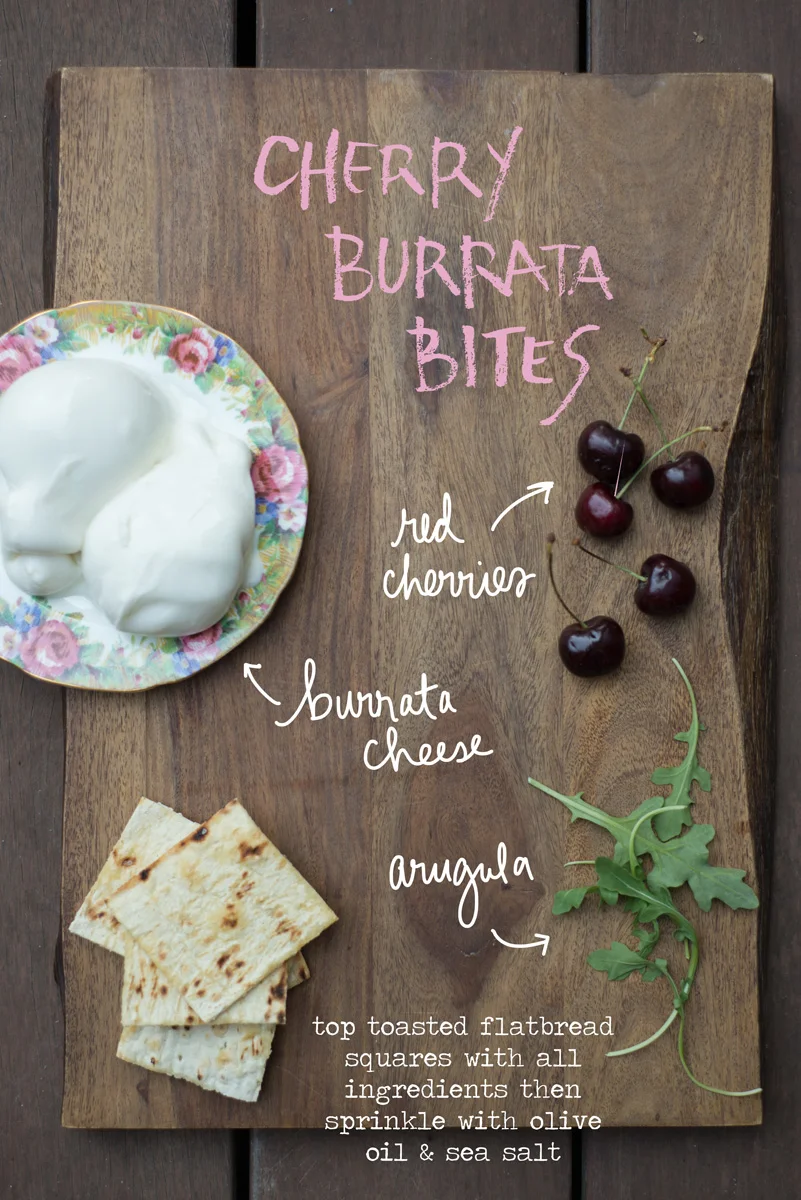 CHERRY
BURRATA
BITES
red
cherries
burrata
cheese
arugula
top toasted flatbread
squares with all
ingredients then
sprinkle with olive
oil & sea salt